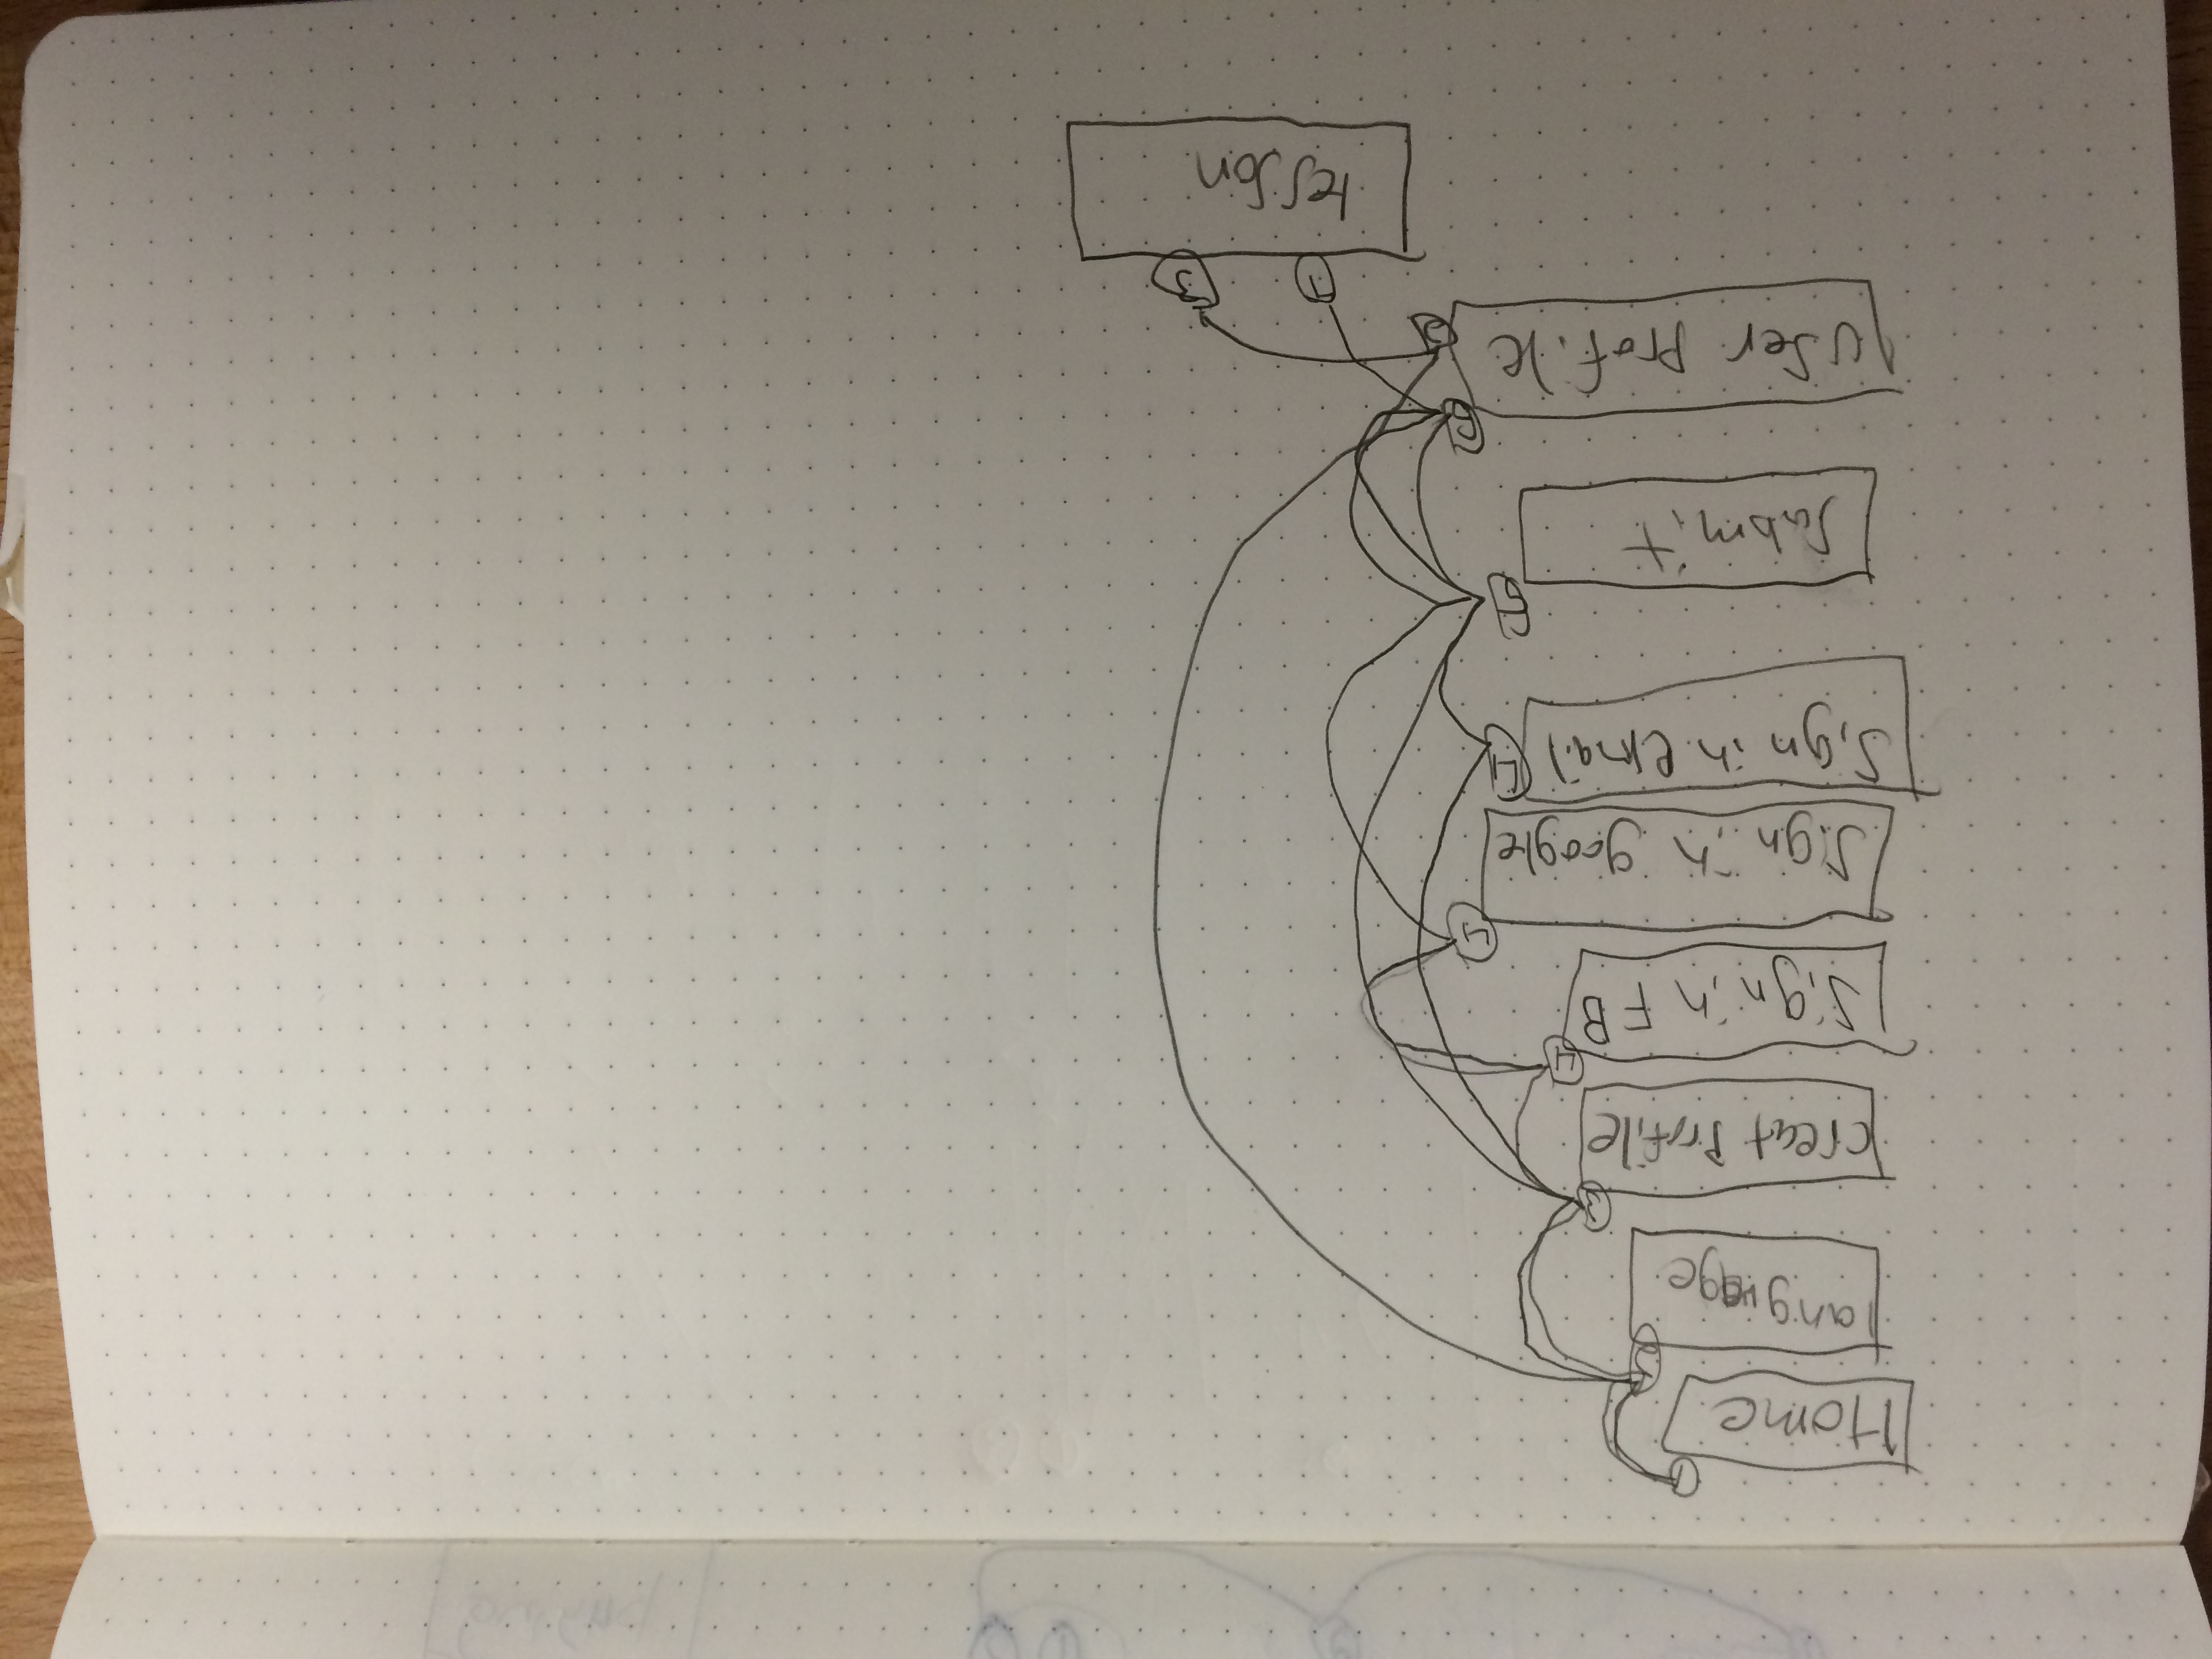 Home
language
creat Profile
Sign in FB
Sign in google
Sign in email
submit
User Profile
lesson
3
4
4
4
5
6
3
7